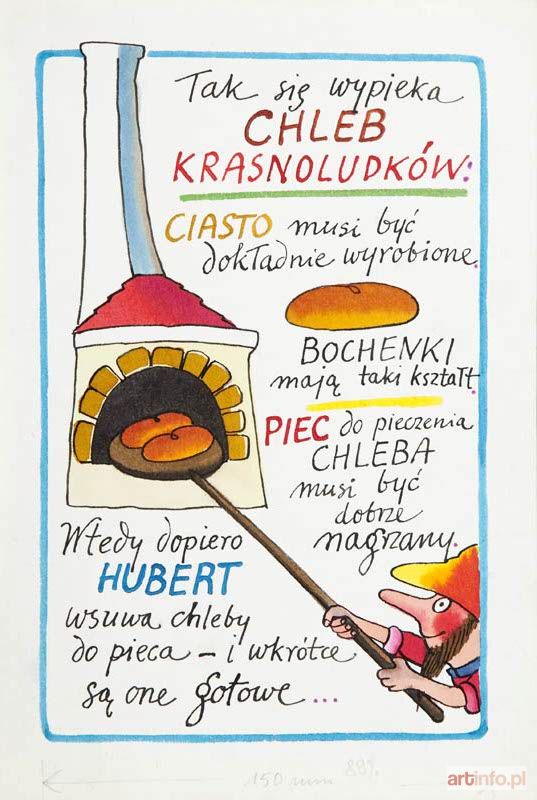 Tak się wypieka
CHLEB
KRASNOLUDKÓW:
CIASTO musi być
dokładnie wyrobione.
BOCHENKI
mają taki kształt.
PIEC do pieczenia
CHLEBA
musi być
dobrze
nagrzany.
Wtedy dopiero
HUBERT
wsuwa chleby
do pieca – i wkrótce
są one gotowe...
150 mm 89%
artinfo.pl